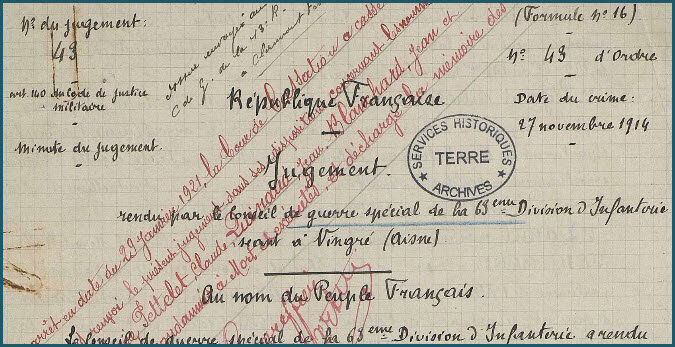 N° du jugement:
43
art. 140 du Code de justice
militaire
Minute du jugement.
dossier envoyé au
C de G. de la 43e R.
à Clermont
(Formule N° 16)
N° 43 d'Ordre
Date du crime:
27 novembre 1914
République Française
SERVICES HISTORIQUES
TERRE
ARCHIVES
Jugement.
rendu par le Conseil de guerre spécial de la 63eme Division d'Infanterie
séant à Vingré (Aisne)
Au nom du Peuple Français.
Le Conseil de guerre spécial de la 63eme Division d'Infanterie a rendu
arrêt en date du 29 Janvier 1921, la Cour de Cassation a cassé
le présent jugement dans ses dispositions concernant les nommés
Pettelet, Claude Jean, Blanchard, Jean et
condamnés à Mort et exécutés, et déchargé la mémoire des